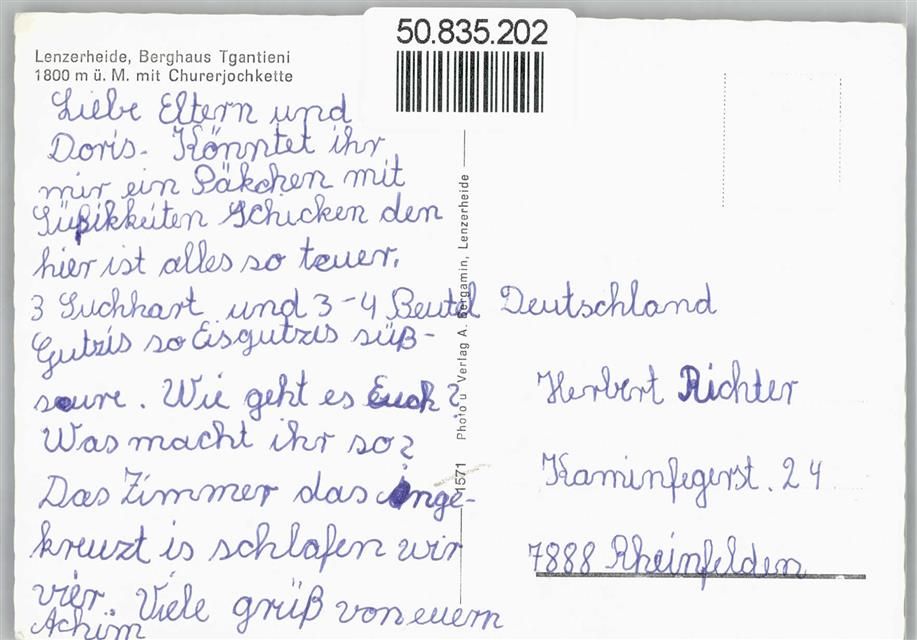 50.835.202
Lenzerheide, Berghaus Tgantieni
1800 m ü. M. mit Churerjochkette
Liebe Eltern und
Doris. Könntet ihr
mir ein Päkchen mit
Süßikkeiten Schicken den
hier ist alles so teuer.
3 Suchhart und 3-4 Beutel
Gutzis so Eisgutzis süß-
saure. Wie geht es Euch?
Was macht ihr so?
Das Zimmer das ange-
kreuzt is schlafen wir
vier. Viele grüß von euern
Achim
1571 Photo u. Verlag A. Bergamin, Lenzerheide
Deutschland
Herbert Richter
Kaminfegerst. 24
7888 Rheinfelden